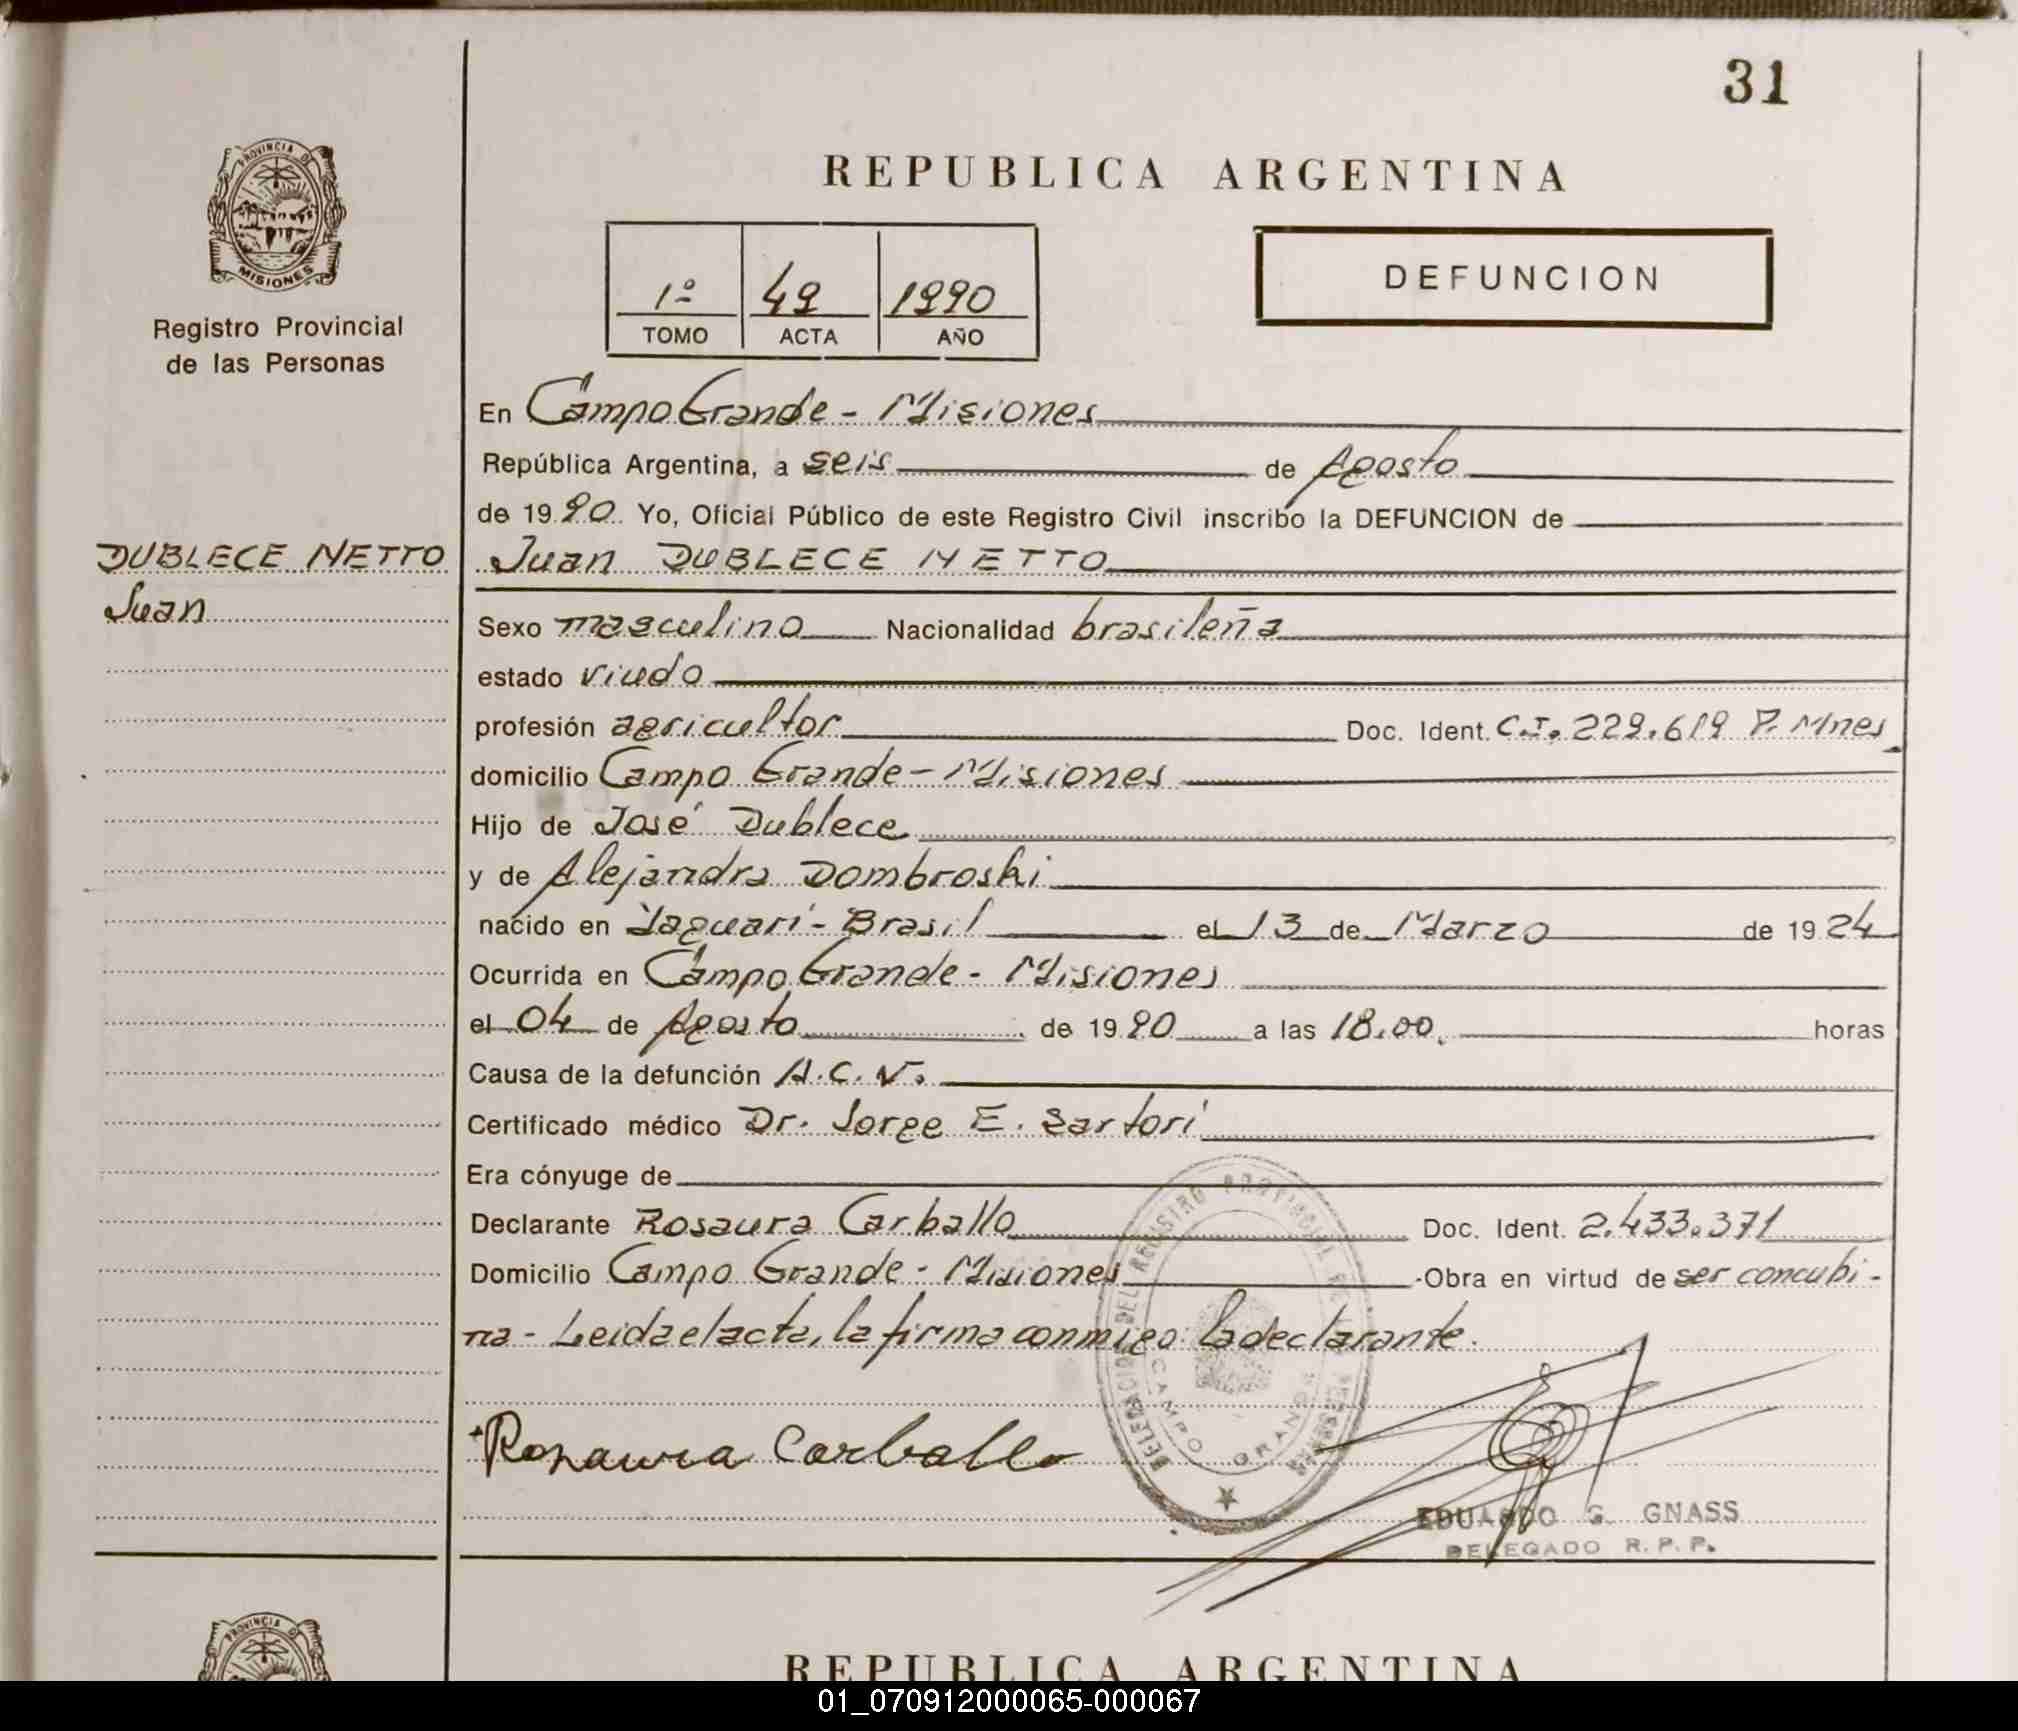 31
PROVINCIA DE
MISIONES
Registro Provincial
de las Personas
REPUBLICA ARGENTINA
1º 49 1990
TOMO ACTA AÑO
DEFUNCION
DUBLECE NETTO
Juan
En Campo Grande - Misiones
República Argentina, a seis de Agosto
de 1990 Yo, Oficial Público de este Registro Civil inscribo la DEFUNCION de
Juan DUBLECE NETTO
Sexo masculino Nacionalidad brasileña
estado viudo
profesión agricultor Doc. Ident. C.I. 229.619 P. Mnes
domicilio Campo Grande - Misiones
Hijo de José Dublece
y de Alejandra Dombroski
nacido en Yaguarí - Brasil el 13 de Marzo de 1924
Ocurrida en Campo Grande - Misiones
el 04 de Agosto de 1990 a las 18.00. horas
Causa de la defunción A.C.V.
Certificado médico Dr. Jorge E. Sartori
Era cónyuge de
Declarante Rosaura Carballo Doc. Ident. 2.433.371
Domicilio Campo Grande - Misiones -Obra en virtud de ser concubi-
na - Leida el acta, la firma conmigo la declarante.
Rosaura Carballo
DELEGACION DEL REGISTRO PROVINCIAL DE LAS PERSONAS
CAMPO GRANDE
EDUARDO G. GNASS
DELEGADO R.P.P.
PROVINCIA DE
REPUBLICA ARGENTINA
01_070912000065-000067